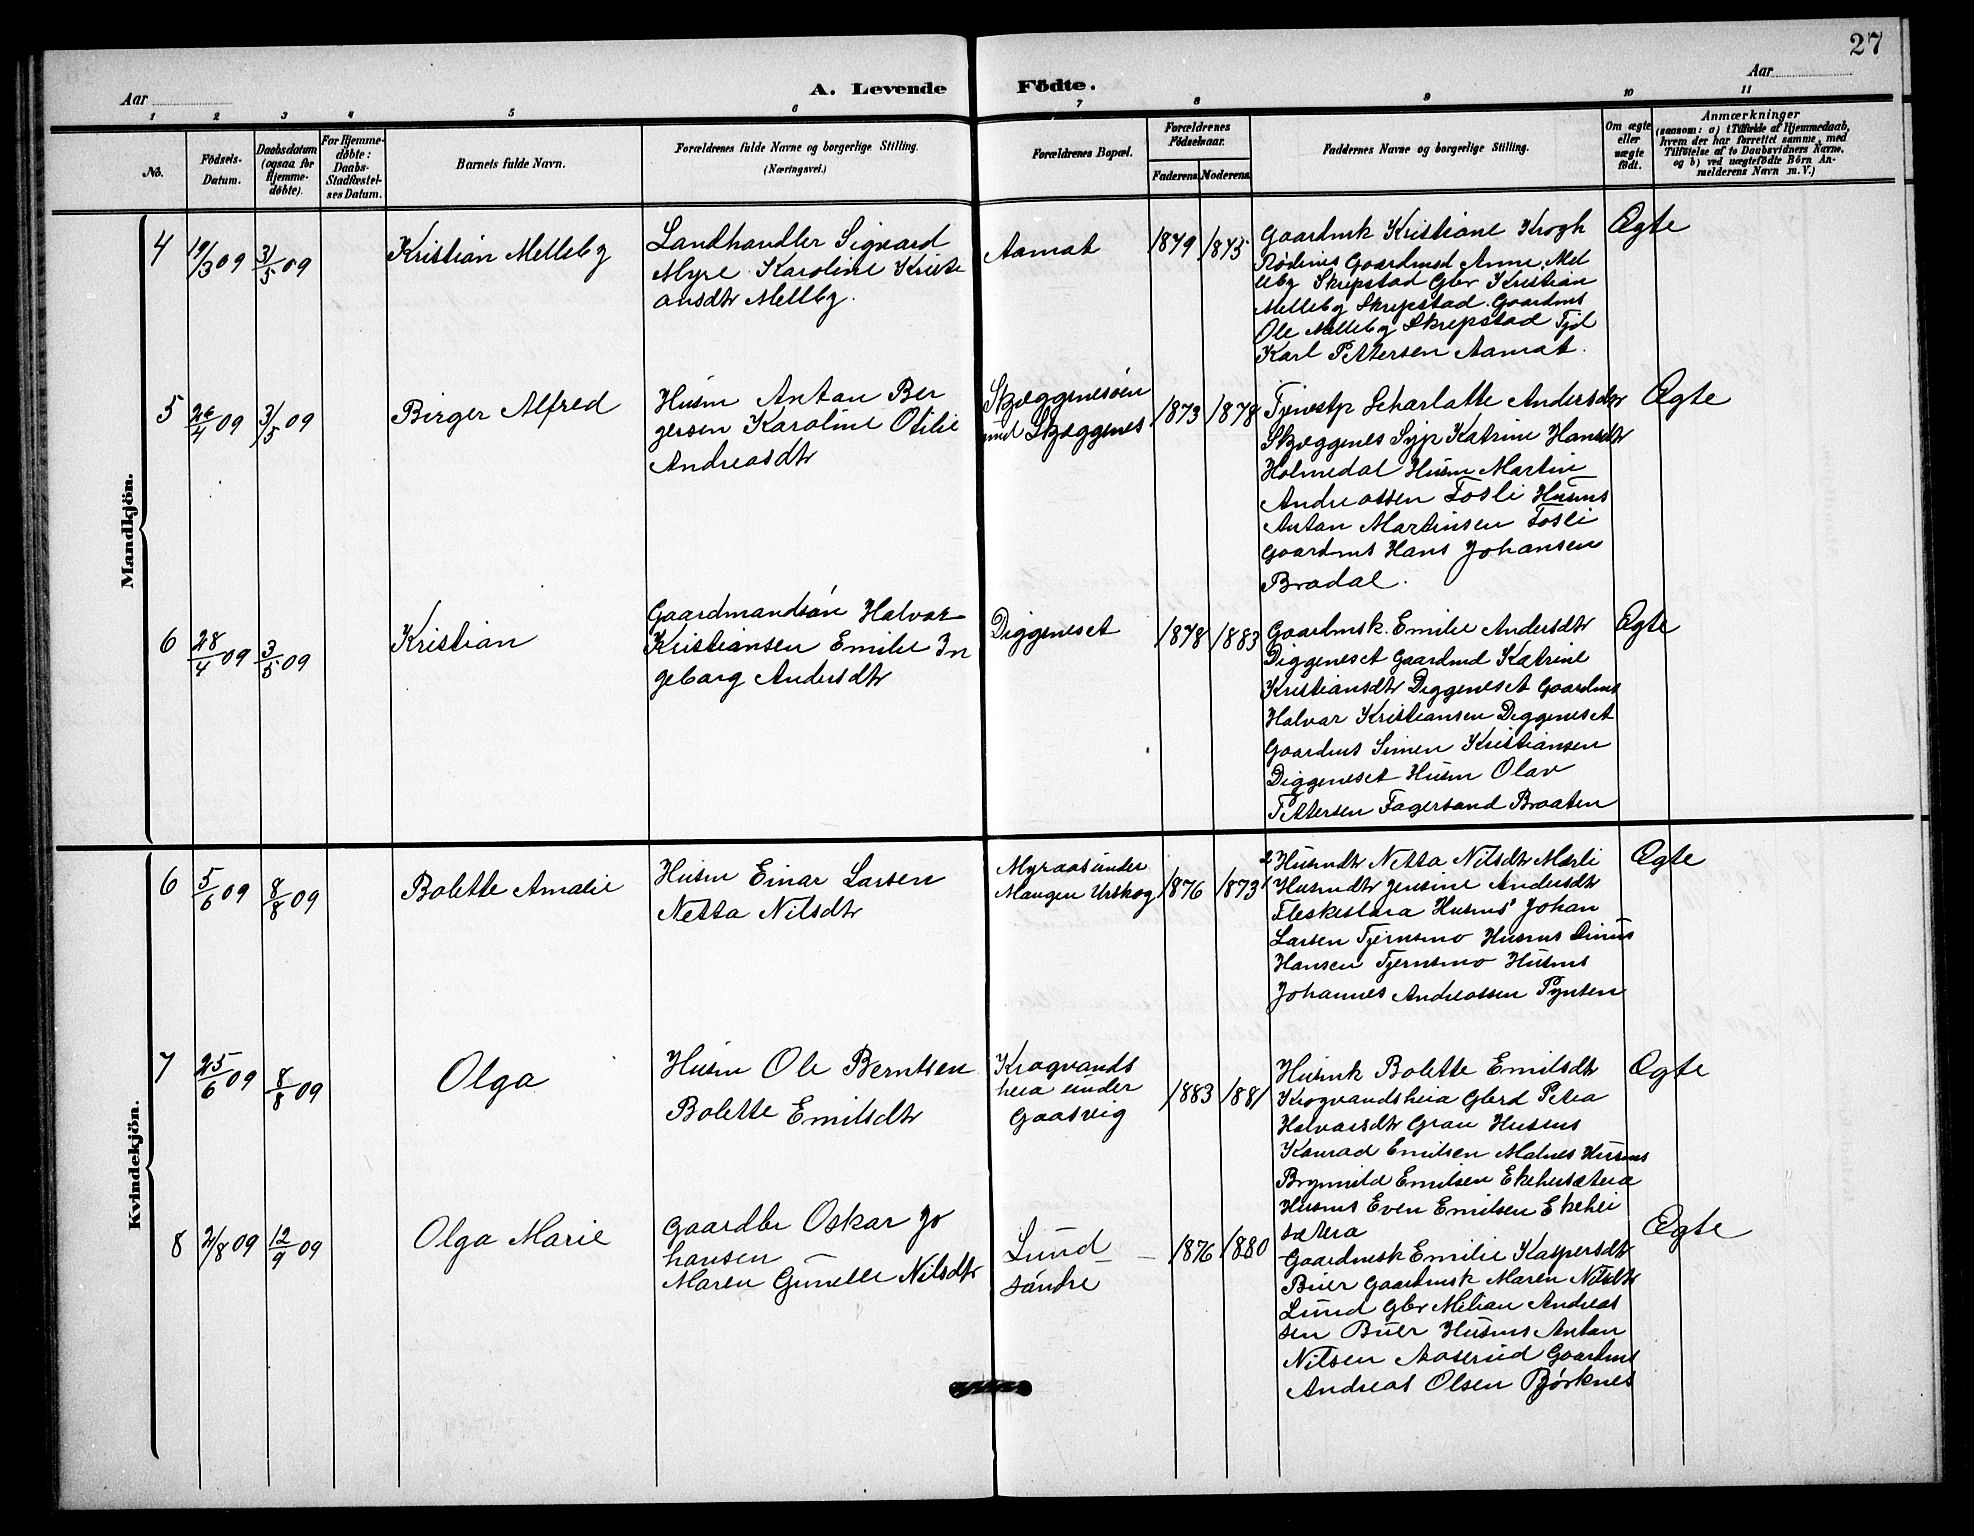 27
A. Levende Födte.
Aar
Aar
1 2 3 4 5 6 7 8 9 10 11
No.
Födsels-
Datum.
Daabsdatum
(ogsaa for
Hjemme-
døbte).
For Hjemme-
døbte:
Daabs-
Stadfæstel-
ses Datum.
Barnets fulde Navn.
Forældrenes fulde Navne og borgerlige Stilling.
(Næringsvei.)
Forældrenes Bopæl.
Forældrenes
Födselsaar.
Faderens.
Moderens.
Faddernes Navne og borgerlige Stilling.
Om ægte
eller
uægte
født.
Anmærkninger
(saasom: a) i Tilfælde af Hjemmedaab,
hvem der har forrettet samme, med
Tilføielse af to Daabsvidners Navne.
og b) ved uægtefødte Börn An-
melderens Navn m. V.)
Mandkjön.
4
19/3 09
3/5 09
Kristian Melleby
Landhandler Sigvard
Myre Karoline Kristi
ansdtr Melleby.
Aamot
1879
1875
Gaardmk Kristiane Krogh
Rødenes Gaardmd Anne Mel
leby Skrepstad Gbr Kristian
Melleby Skrepstad. Gaardms
Ole Melleby Skrepstad Tjd
Karl Pettersen Aamot.
Ægte
5
26/4 09
3/5 09
Birger Alfred
Husm Anton Ber
gersen Karoline Otilie
Andreasdtr
Skjæggenesøen
und Skjæggenes
1873
1878
Tjenestp Scharlotte Andersdtr
Skjæggenes Syp Katrine Hansdtr
Holmedal Husm Martin
Andreassen Fosli Husms
Anton Martinsen Fosli
Gaardms Hans Johansen
Bradal.
Ægte
6
28/4 09
3/5 09
Kristian
Gaardmandsøn Halvor
Kristiansen Emilie In
geborg Andersdtr
Diggeneset
1878
1883
Gaardmsk. Emilie Andersdtr
Diggeneset Gaardmd Katrine
Kristiansdtr Diggeneset Gaardms
Halvar Kristiansen Diggeneset
Gaardms Simen Kristiansen
Diggeneset Husm Olav
Pettersen Fagersand Braaten
Ægte
Kvindekjön.
6
5/6 09
8/8 09
Bolette Amalie
Husm Einar Larsen
Netta Nilsdtr
Myraas under
Mangen Urskog
1876
1873
Husmdtr Netta Nilsdtr Mærli
Husmdtr Jensine Andersdtr
Fleskeslora Husms Johan
Larsen Tjernsmo Husms Dinus
Hansen Tjernsmo Husms
Johannes Andreassen Pynten
Ægte
7
25/6 09
8/8 09
Olga
Husm Ole Berntsen
Bolette Emilsdtr
Krogvands
heia under
Gaasvig
1883
1881
Husmk Bolette Emilsdtr
Krogvandsheia Gbrd Petra
Halvorsdtr Grau Husms
Konrad Emilsen Malnes Husms
Brynmild Emilsen Ekehusætera
Husms Even Emilsen Ekehei
sætera
Ægte
8
2/8 09
12/9 09
Olga Marie
Gaardbr Oskar Jo
hansen
Maren Gunelle Nilsdtr
Lund
søndre
1876
1880
Gaardmsk Emilie Kaspersdtr
Buer Gaardmsk Maren Nilsdtr
Lund Gbr Milian Andreas
sen Buer Husms Anton
Nilsen Aaserud Gaardms
Andreas Olsen Bjørknes
Ægte